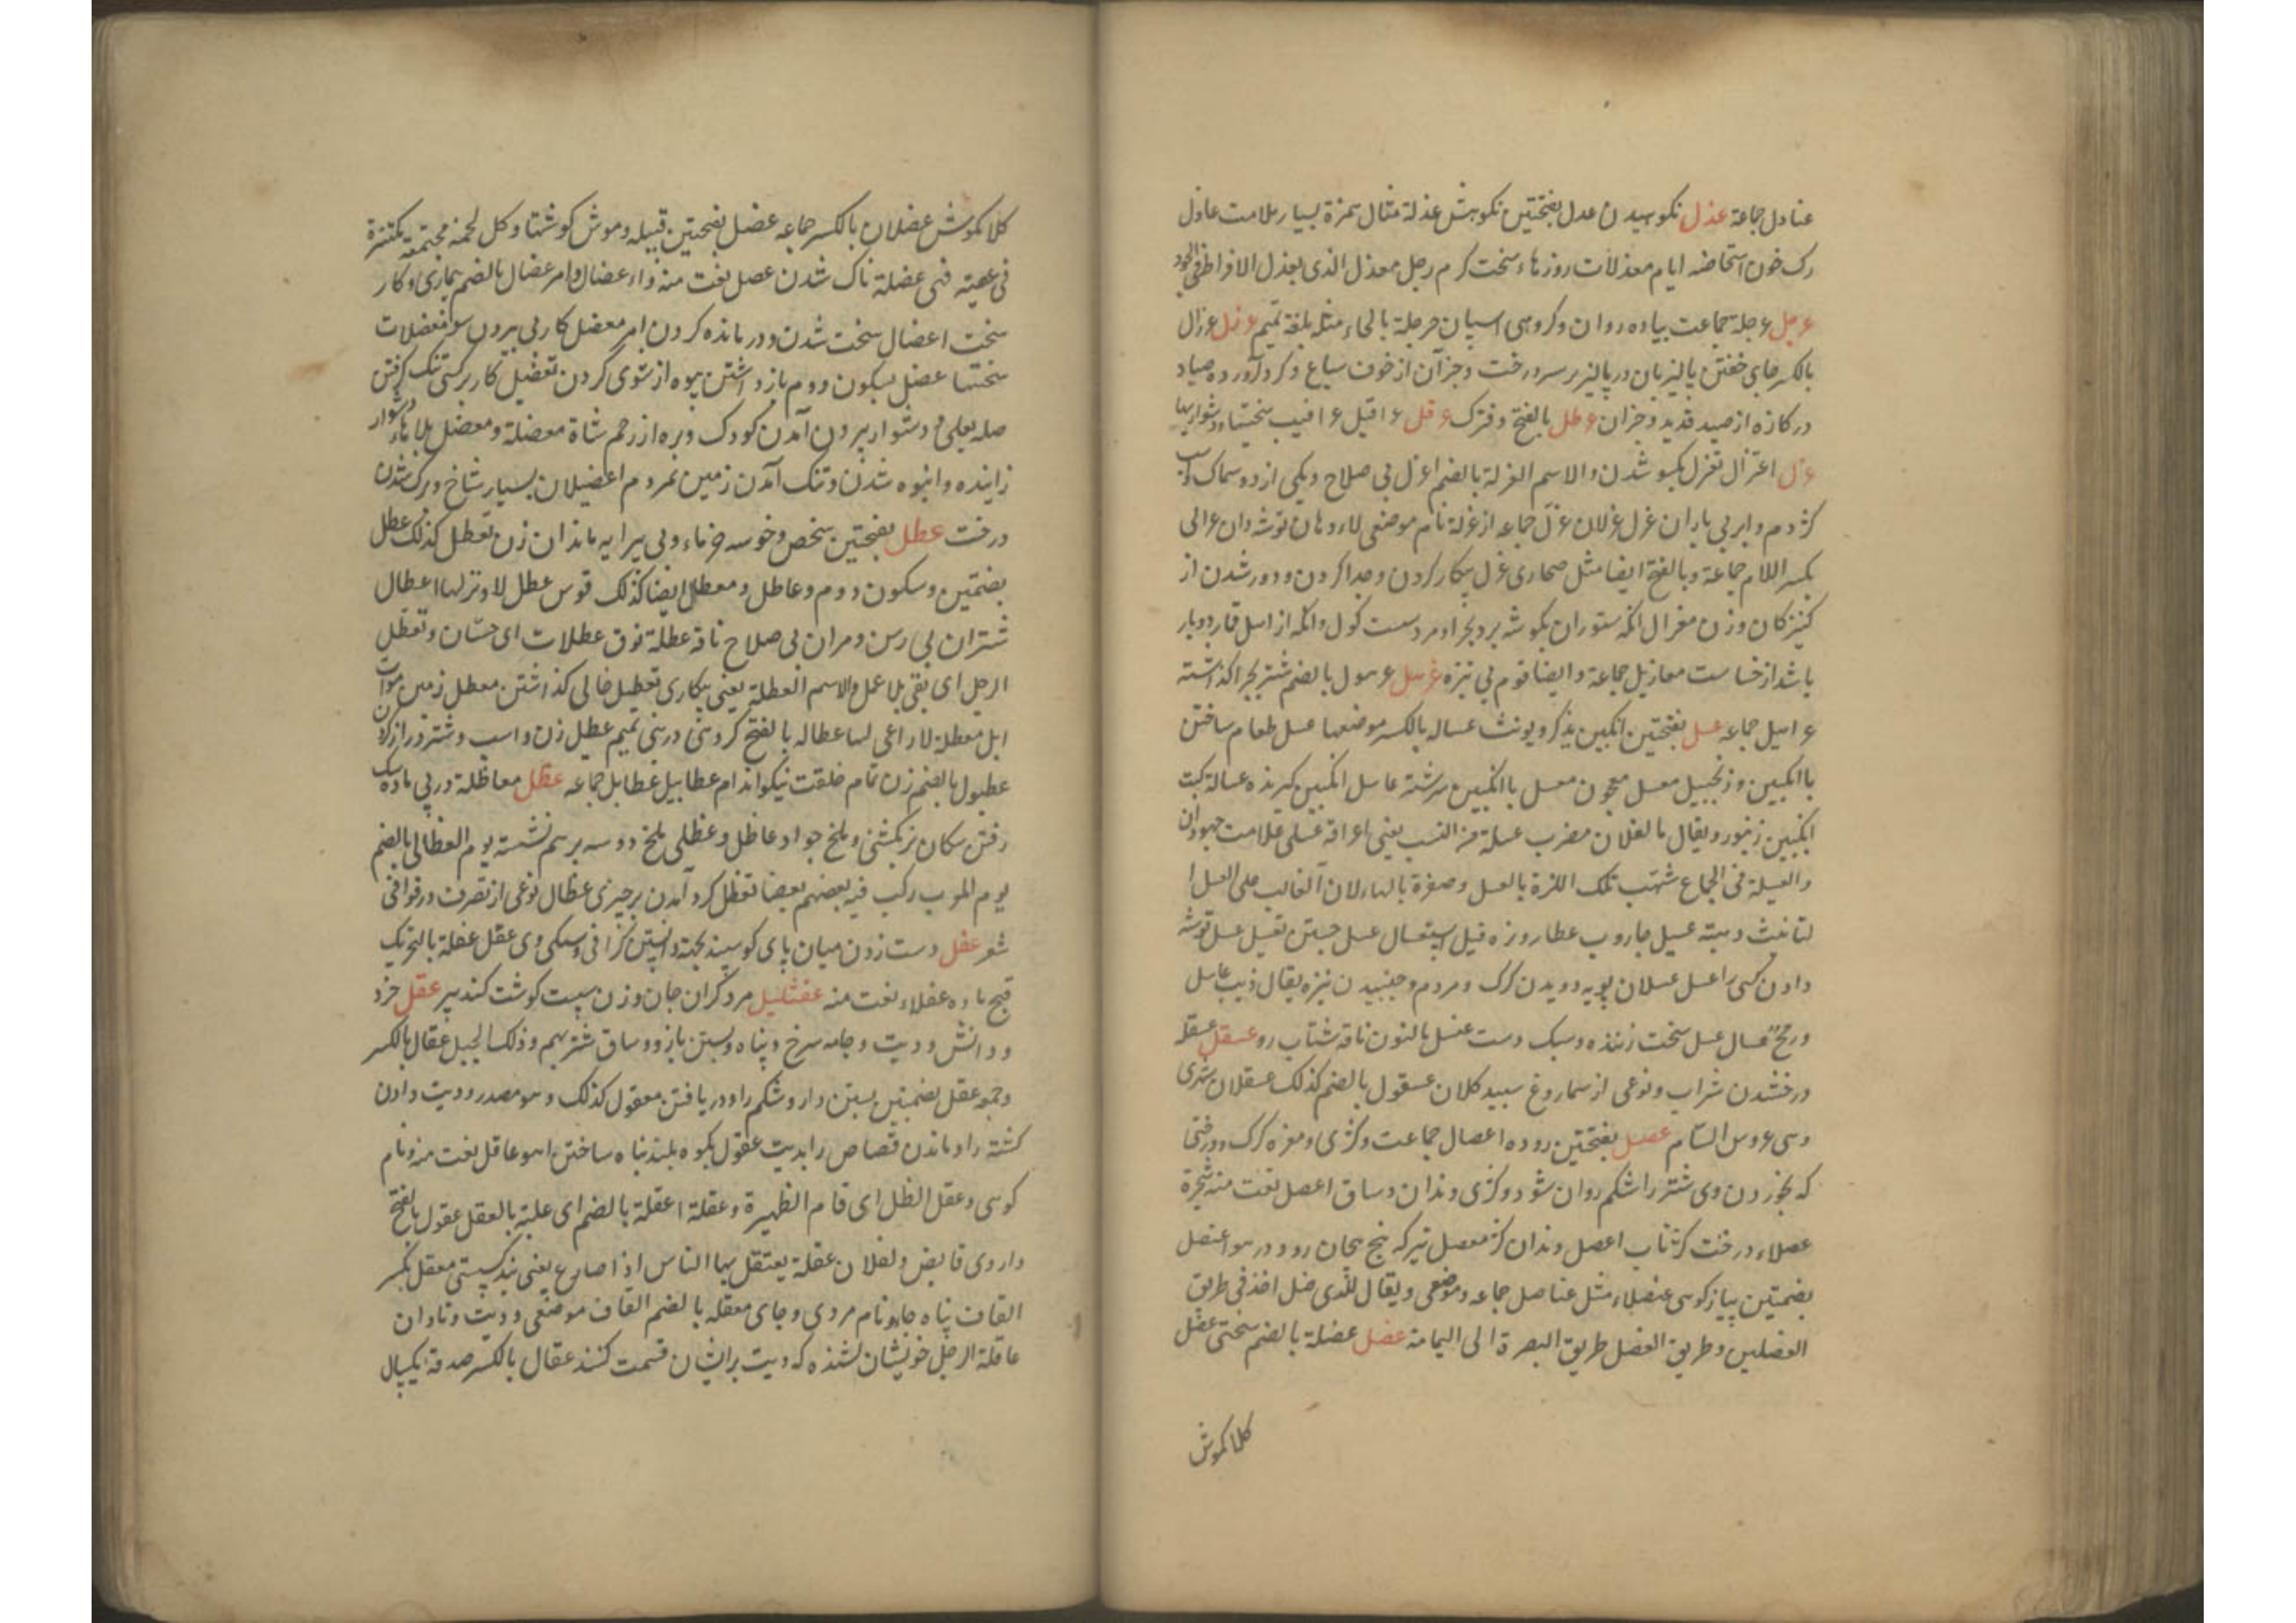 عنادل جماعة عذل نکوهیدن عدل بفتحتین نکوهش عذلة مثال همزة بسیار ملامت عاذل
رک خون استحاضه ایام معذلات روزهاء سخت کرم رجل معذل الذی یعذل الافراط فی الجود
عرجل عرجلة جماعت پیاده روان وکروهی اسپان حرجلة بالحاء مثله بلغة تمیم عرزل عرزال
بالکسر جای خفتن پالیزبان در پالیز بر سر درخت وجزآن از خوف سباع وکرد آورده صیاد
در کازه از صید قدید وجزان عرطل بالفتح وفترک عرقل عراقیل عراقیب سختیها ودشواریها
عزل اعتزال تعزل یکسو شدن والاسم العزلة بالضم اعزل بی صلاح ویکی از دو سماک واسب
کژدم وابر بی باران عزل عزلان عزّل جماعه از عزلة نام موضعی لاء ودهان توشه دان عزالی
بکسر اللام جماعة وبالفتح ایضا مثل صحاری عزل بیکار کردن وجدا کردن ودور شدن از
کنیزکان وزن معزال انکه ستوران بکوشه برد بچرا ومرد سست کول وانکه از اهل قمار دوبار
باشد از خساست معازیل جماعة وایضا قوم بی نیزه عرهل عرهول بالضم شتر بچرا کذاشته
عراهیل جماعه عسل بفتحتین انکبین یذکر ویونث عساله بالکسر موضعها عسل طعام ساختن
با انکبین وزنجبیل معسل معجون معسل با انکبین سرشته عاسل انکبین کیرنده عسالة کبت
انکبین زنبور ویقال ما لفلان مضرب عسلة من النسب یعنی اعراقه عسلی علامت جهودان
والعسیلة فی الجماع شبهت تلک اللذة بالعسل وصغرة بالهاء لان الغالب علی العسل ا
لتانیث وهبته عسیل جاروب عطار ونره فیل استعسال عسل جستن تعسیل عسل توشه
دادن کسی را عسل عسلان پویه دویدن کرک ومردم وجنبیدن نیزه یقال ذیب عاسل
ورمح عسال عسل سخت زننده وسبک دست عنسل بالنون ناقه شتاب رو عسقل عسقلة
درخشیدن شراب ونوعی از سماروغ سپید کلان عسقول بالضم کذلک عسقلان شهری
وهی عروس الشام عصل بفتحتین روده اعصال جماعت وکژی ومغزه کرک ودرختی
که بخوردن وی شتر را شکم روان شود وکژی دندان وساق اعصل نعت منه شجرة
عصلاء درخت کژ ناب اعصل دندان کژ معصل تیر که پیچ پیچان رود در هوا عنصل
بضمتین پیاز کوهی عنصلاء مثل عناصل جماعه وموضعی ویقال للذی ضل اخذ فی طریق
العنصلین وطریق العنصل طریق البصرة الی الیمامة عضل عضلة بالضم سختی عضل
کلاکموش
کلاکموش عضلان بالکسر جماعه عضل بفتحتین قبیله وموش کوشتها وکل لحمة مجتمعة مکتنزة
فی عصبة فهی عضلة ناک شدن عضل نعت منه داء عضال وامر عضال بالضم بیماری وکار
سخت اعضال سخت شدن ودرمانده کردن امر معضل کار بی بیرون سو معضلات
سختیها عضل بسکون دوم باز داشتن بیوه از شوی کردن تعضیل کار بر کسی تنک کرفتن
صله بعلی ودشوار بیرون آمدن کودک وبره از رحم شاة معضلة ومعضل بلا هاء دشوار
زاینده وانبوه شدن وتنک آمدن زمین بمردم اعضیلان بسیار شاخ وبرک شدن
درخت عطل بفتحتین شخص وخوسه خرماء وبی پیرایه ماندان زن تعطل کذلک عطل
بضمتین وسکون دوم وعاطل ومعطل ایضا کذلک قوس عطل لا وتر لها اعطال
شتران بی رسن ومران بی صلاح ناقة عطلة نوق عطلات ای حسان وتعطل
الرجل ای بقی بلا عمل والاسم العطلة یعنی بیکاری تعطیل خالی کذاشتن معطل زمین موات
ابل معطلة لا راعی لها عطاله بالفتح کروهی در بنی تمیم عطل زن واسب وشتر دراز کردن
عطبول بالضم زن تمام خلقت نیکو اندام عطابیل عطابل جماعه عظل معاظلة در پی ماده سک
رفتن سکان نر بکشنی وملخ جراد عاظل وعظلی ملخ دو سه بر هم نشسته یوم العظالی بالضم
یوم للعرب رکب فیه بعضهم بعضا تعظل کرد آمدن بر چیزی عظال نوعی از تصرف در قوافی
شعر عفل دست زدن میان پای کوسپند بجهة دانستن کرانی وسبکی وی عفل عفلة بالتحریک
قبج ماده عفلاء نعت منه عفشلیل مرد کران جان وزن سپست کوشت کنده پیر عقل خرد
ودانش ودیت وجامه سرخ وپناه وبستن بازو وساق شتر بهم وذلک الحبل عقال بالکسر
وجمع عقل بضمتین بستن دارو شکم را ودریافتن معقول کذلک وهو مصدر ودیت دادن
کشته را وماندن قصاص را بدیت عقول بکوه بلند پناه ساختن اهو عاقل نعت منه ونام
کوهی وعقل الظل ای قام الظهیرة وعقلة اعقلة بالضم ای غلبته بالعقل عقول بالفتح
داروی قابض ولفلان عقلة یعتقل بها الناس اذا صارع یعنی بند کستی معقل بکسر
القاف پناه جاه ونام مردی وجای معقله بالضم القاف موضعی ودیت وتاوان
عاقلة الرجل خویشان کشنده که دیت بر ایشان قسمت کنند عقال بالکسر صدقة یکسال